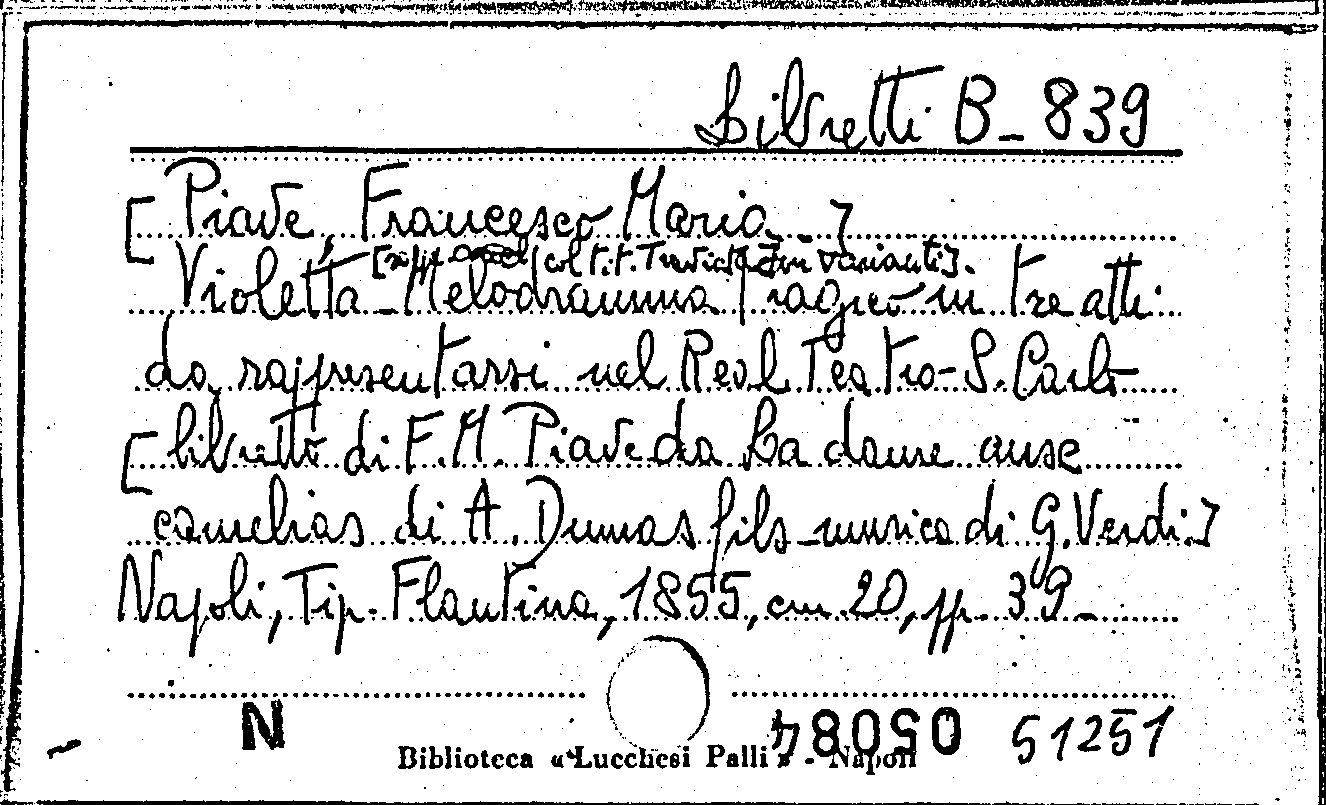 Libretti B-839
[Piave, Francesco Maria-]
col tit. Traviata con varianti].
Violetta-Melodramma tragico in tre atti
da rappresentarsi nel Real Teatro-S. Carlo
[libretto di F.M. Piave da La dame aux
camelias di A. Dumas fils-musica di G. Verdi.]
Napoli, Tip. Flautina, 1855, cm. 20, pp. 39-
N 05084 51251
Biblioteca «Lucchesi Palli» - Napoli